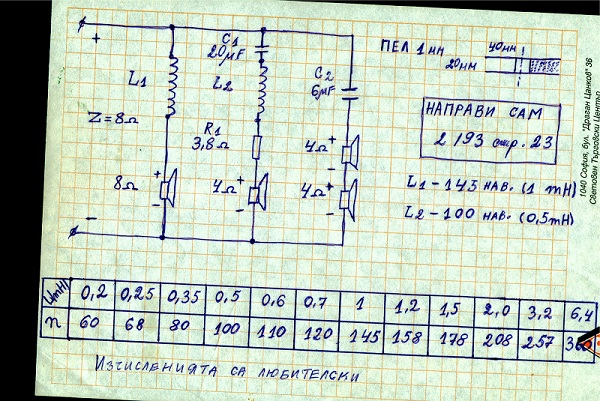 +
C1
20µF
L1
L2
C2
6µF
Z=8Ω
R1
3,8Ω
8Ω
+
-
4Ω
+
-
4Ω
+
4Ω
+
-
-
ПЕЛ 1мм
40мм
20мм
НАПРАВИ САМ
2/93 стр. 23
L1 - 145 нав. (1 mH)
L2 - 100 нав. (0,5mH)
1040 София, бул. "Драган Цанков" 36
Световен Търговски Център
L(mH) 0,2 0,25 0,35 0,5 0,6 0,7 1 1,2 1,5 2,0 3,2 6,4
n 60 68 80 100 110 120 145 158 178 208 257
ИЗЧИСЛЕНИЯТА СА ЛЮБИТЕЛСКИ